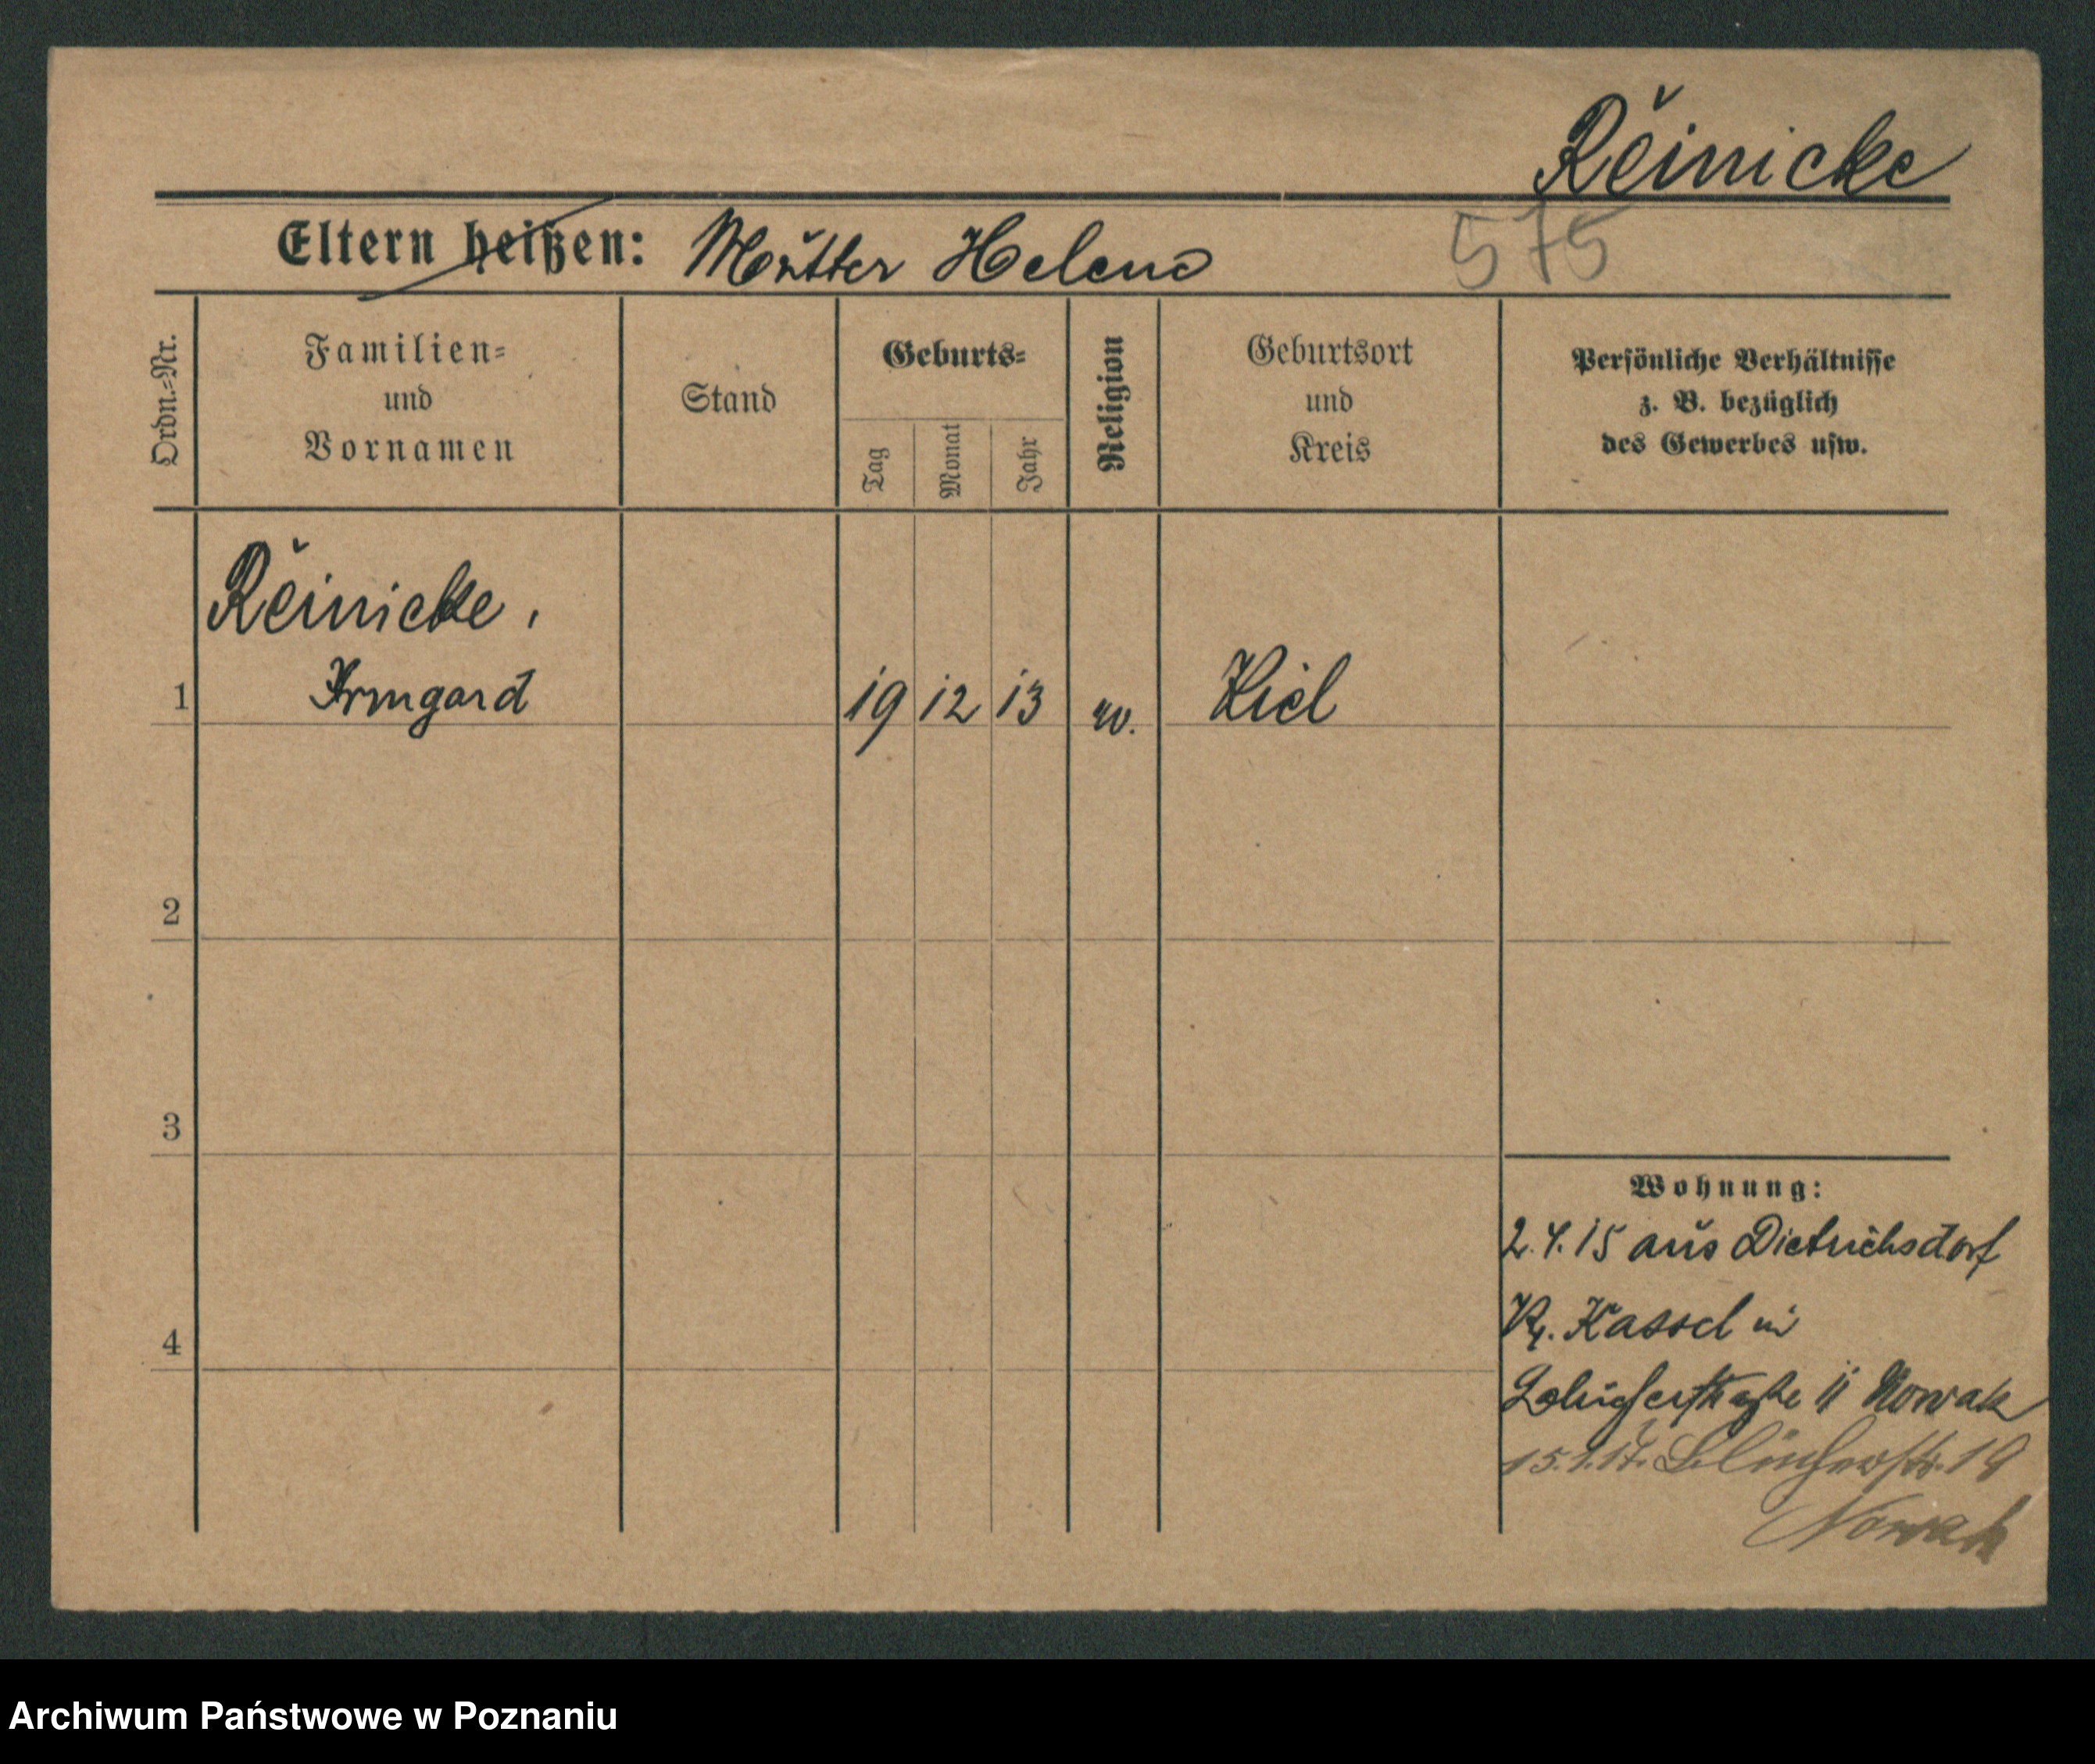 Reinicke
Eltern heißen: Mutter Helene 575
Ordn.=Nr.
Familien=
und
Vornamen
Stand
Geburts=
Tag
Monat
Jahr
Religion
Geburtsort
und
Kreis
Persönliche Verhältnisse
z. B. bezüglich
des Gewerbes usw.
Reinicke,
1 Irmgard 19 12 13 ev. Kiel
2
3
4
Wohnung:
2.4.15 aus Dietrichsdorf
Kr. Kassel in
11 Nowak
15.1.17. Blücherstr. 19
Nowak
Archiwum Państwowe w Poznaniu